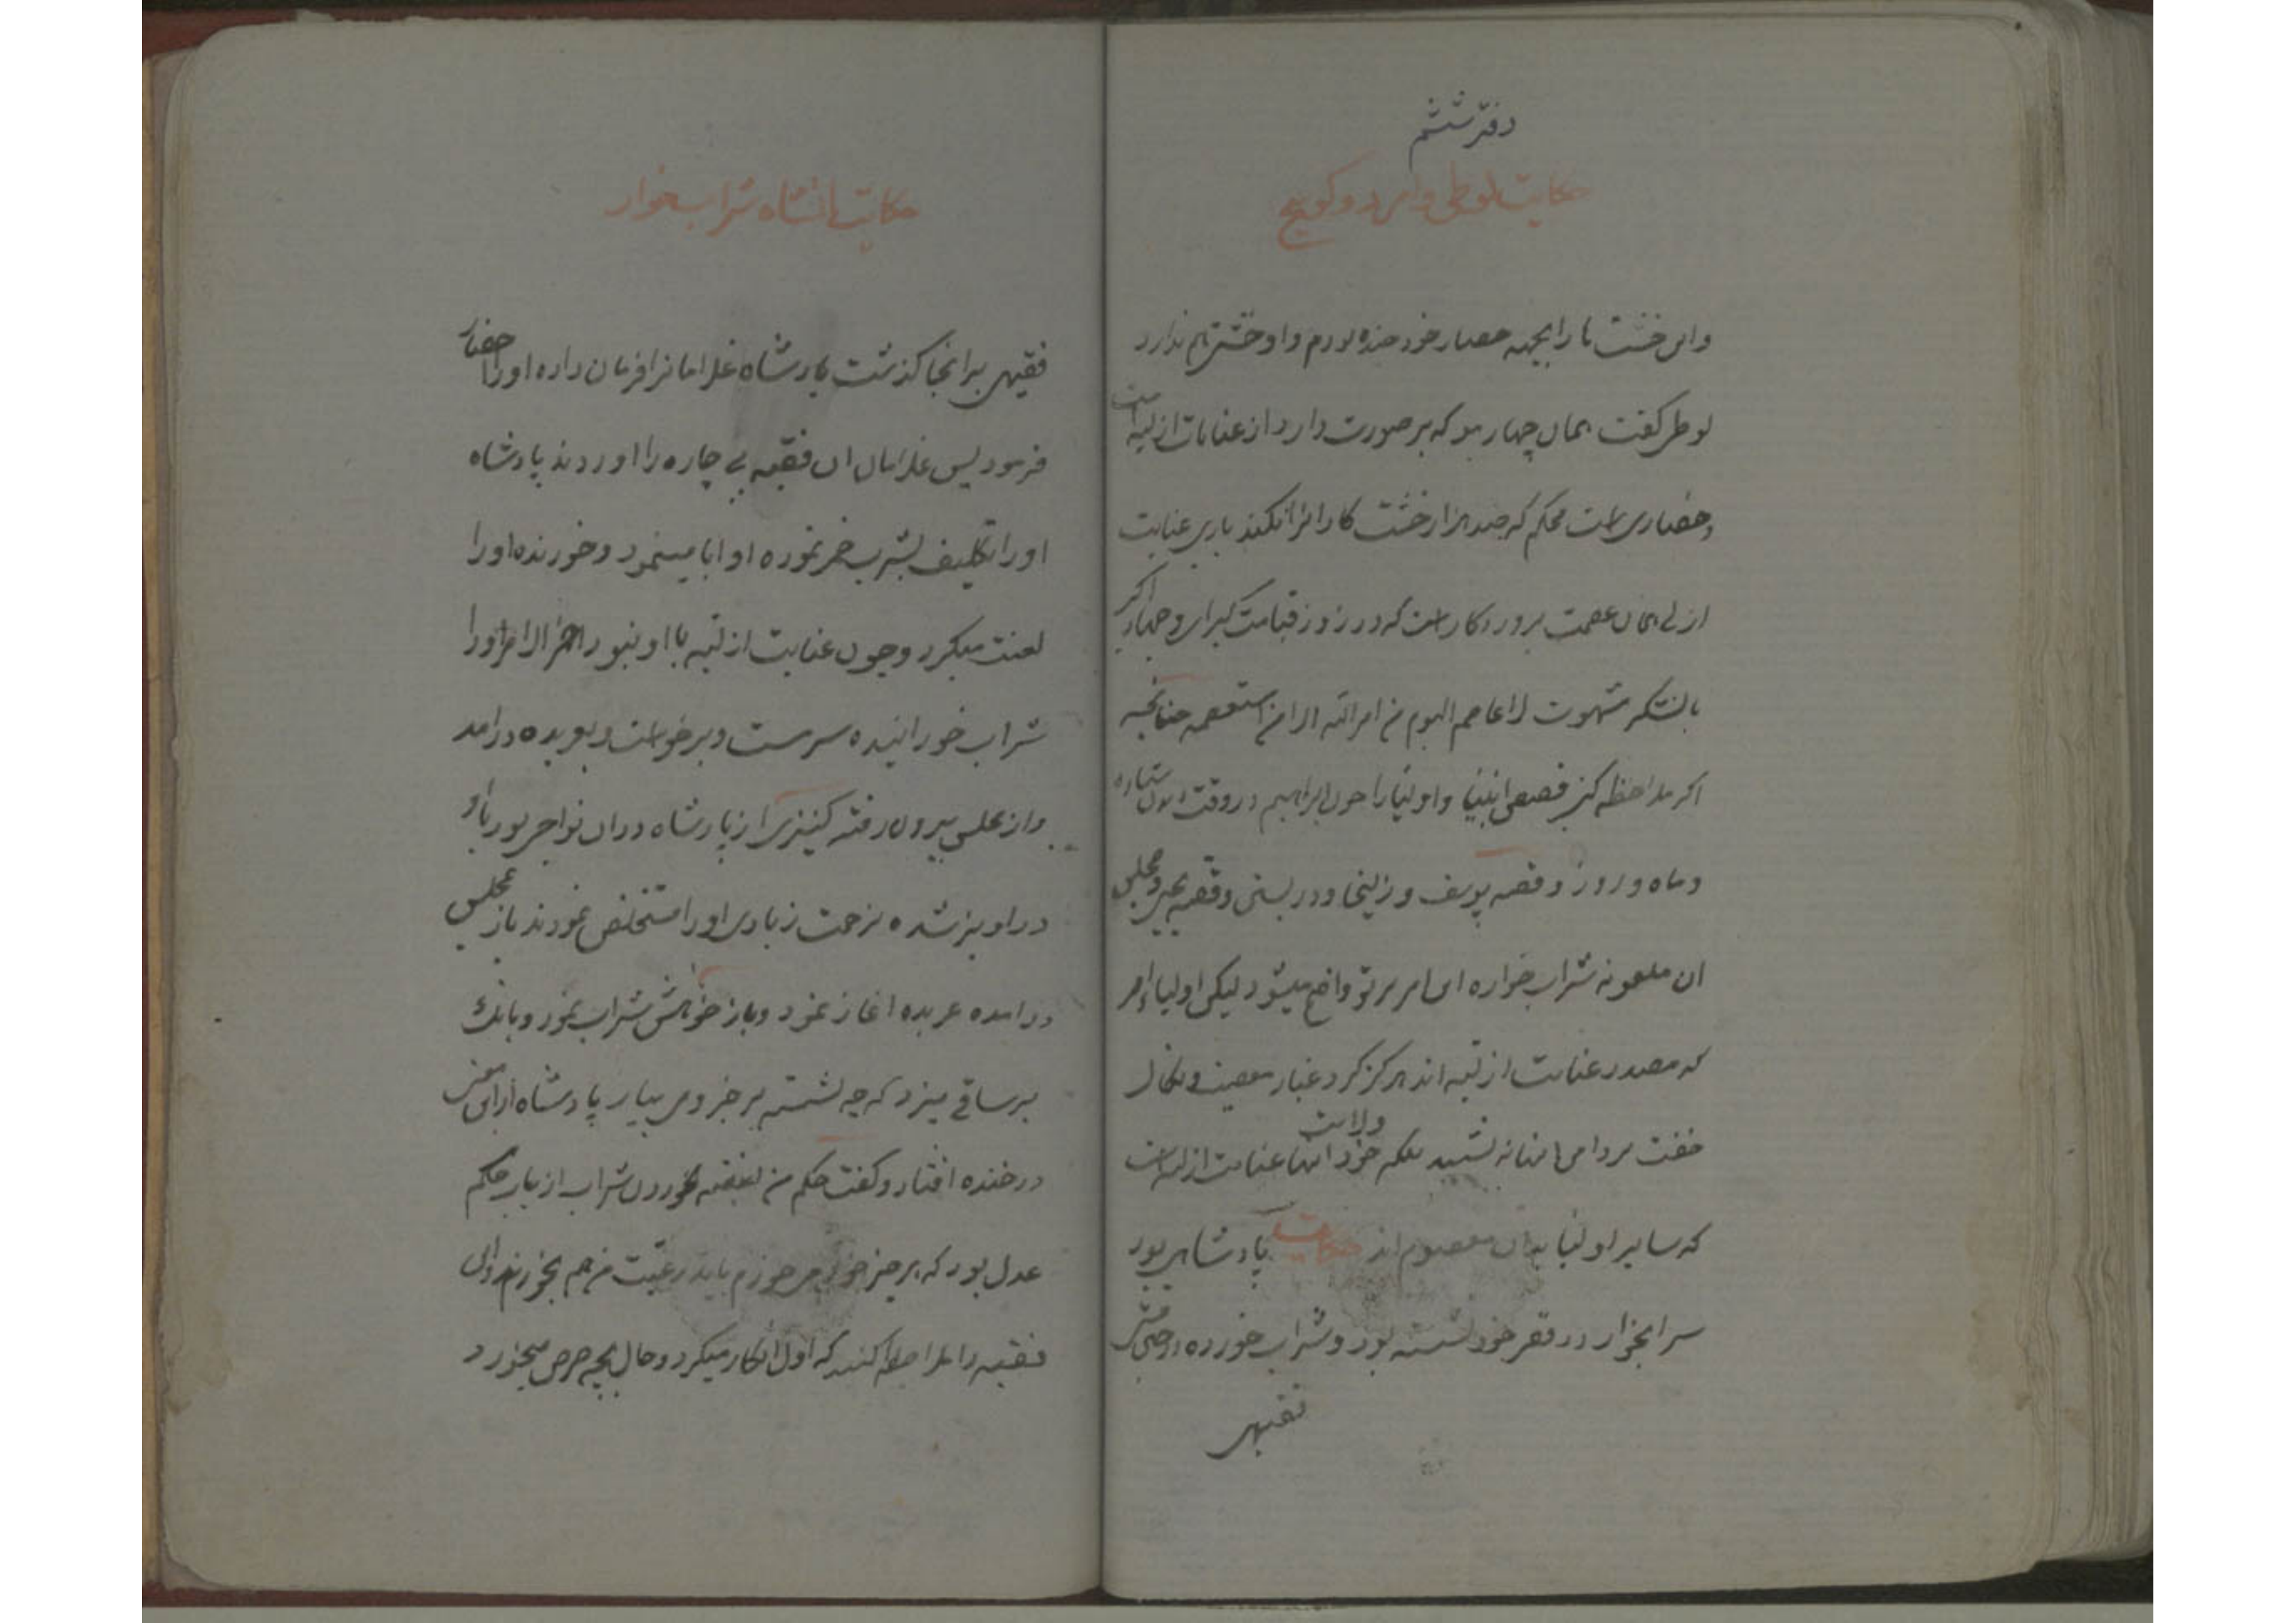 دفتر ششم
حکایت لوطی و امرد و کوسج
و این خشت ها را بجهه حصار خود چیده بودم و او خشتی هم ندارد
لوطی گفت همان چهار مو که بر صورت دارد از عنایات ازلیه است
و حصاری است محکم که صد هزار خشت کار انرا نکند باری عنایت
ازلی همان عصمت پروردکار است که در روز قیامت کبرای و جهاد اکبر
با لشکر شهوت لا عاصم الیوم من امر الله الا من استعصمه چنانچه
اکر ملاحظه کنی قصص انبیا و اولیا را چون ابراهیم در وقت ستاره
و ماه و روز و قصه یوسف و زلیخا و در بستن و قصه یحیی و مجلس
ان ملعونه شراب خواره این امر بر تو واضح میشود لیکن اولیاء امر
که مصدر عنایت ازلیه اند هرکز کرد غبار معصیت و
خفت بر دامن انها نه نشیند بلکه خود ولایت انها عنایت ازلیه است
که سایر اولیا بدان معصوم اند حکایت پادشاهی بود
سرابخوار در قصر خود نشسته بود و شراب خورده در حین
فقیهی
حکایت انشاه شراب خوار
فقیهی بر انجا کذشت پادشاه غلامانرا فرمان داده او را احضار
فرمود پس غلامان ان فقیه بی چاره را اوردند پادشاه
او را تکلیف بشرب خمر نموده او ابا مینمود و خورنده او را
لعنت میکرد و چون عنایت ازلیه با او نبود اخر الامر او را
شراب خورانیده سرمست و برخواست و بعربده درامد
و از مجلس بیرون رفته کنیزی از پادشاه دران نواحی بود با او
دراویز شده بزحمت زیادی او را مستخلص نمودند باز بمجلس
درامده عربده اغاز نمود و باز خواهش شراب نمود و بانک
بر ساقی میزد که چه نشسته برخیز و می بیار پادشاه از این معنی
در خنده افتاد و کفت حکم من بفقیه بخوردن شراب از باب حکم
عدل بود که هر چیز خود می خورم باید رعیت من هم بخورند این
فقیه را ملاحظه کنید که اول انکار میکرد و حال بچه حرص میخورد